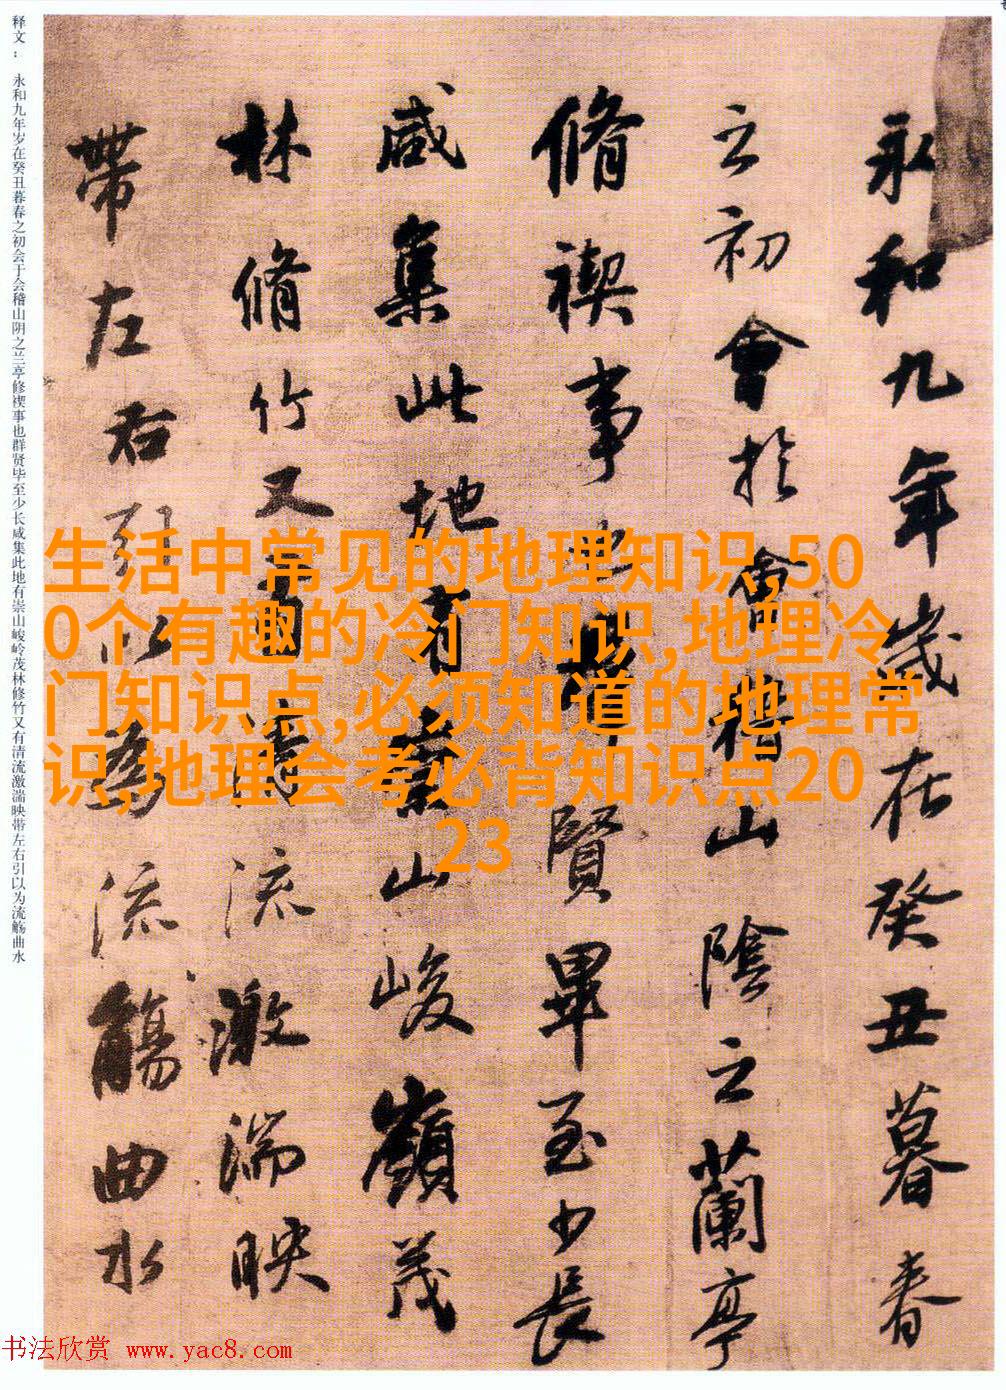 永和九年歲在癸丑暮春
之初會於會稽山陰之蘭亭
脩禊事也群賢畢至少長
咸集此地有崇山峻嶺茂
林脩竹又有清流激湍映
帶左右引以為流觴曲水
释文： 永和九年岁在癸丑暮春之初会于会稽山阴之兰亭修禊事也群贤毕至少长咸集此地有崇山峻岭茂林修竹又有清流激湍映带左右引以为流觞曲水
生活中常见的地理知识,50
0个有趣的冷门知识,地理冷
门知识点,必须知道的地理常
识,地理会考必背知识点20
23
书法欣赏 www.yac8.com